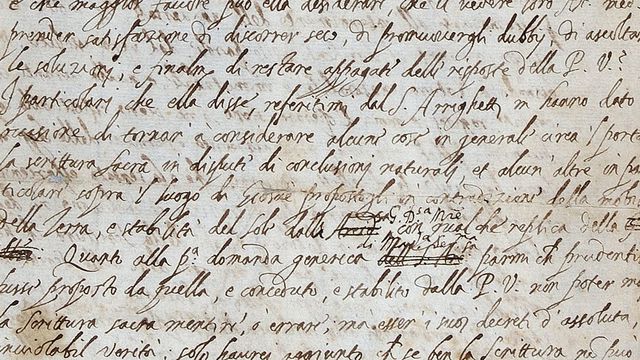 e che maggior favore può ella desiderare, che il vedere loro
prender satisfazione di discorrer seco, di promuovergli dubbij, di ascoltar
le soluzioni, e finalm. di restare appagati delle risposte della P. V.?
I particolari che ella disse, referitimi dal S. Arrighetti, m hanno dato
casione di tornar à considerare alcune cose in generale circa 'l portar
la scrittura Sacra in dispute di conclusioni naturali, et alcun'altre in par
ticolari sopra 'l luogo di Giosuè propostogli in contradizione della mob
della Terra, e stabilità del Sole dalla G. D.sa M.re con qualche replica della
di M.ma Ser.ma
Quanto alla p.a domanda generica parmi ch prudentis
russe proposto da quella, e conceduto, e stabilito dalla P. V. non poter ma
la Scrittura sacra mentire, o errare, ma esser i suoi decreti d'assoluta
inviolabil verità: solo haurei aggiunto, ch se ben la scrittura non